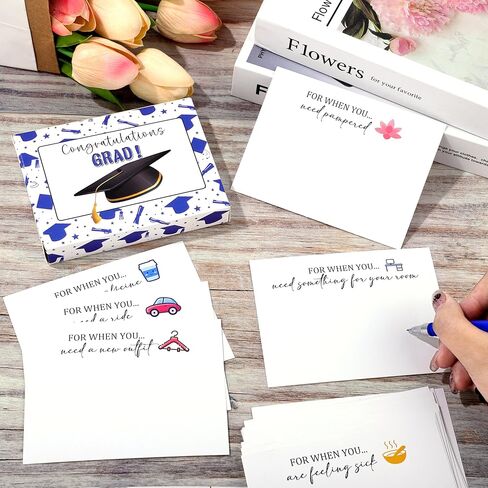 Flowers for your favorite
PROFLOWERS
Congratulations
GRAD!
FOR WHEN YOU...
need pampered
FOR WHEN YOU...
need something for your room
FOR WHEN YOU...
FOR WHEN YOU...
a ride
FOR WHEN YOU...
need a new outfit
FOR WHEN YOU...
are feeling sick